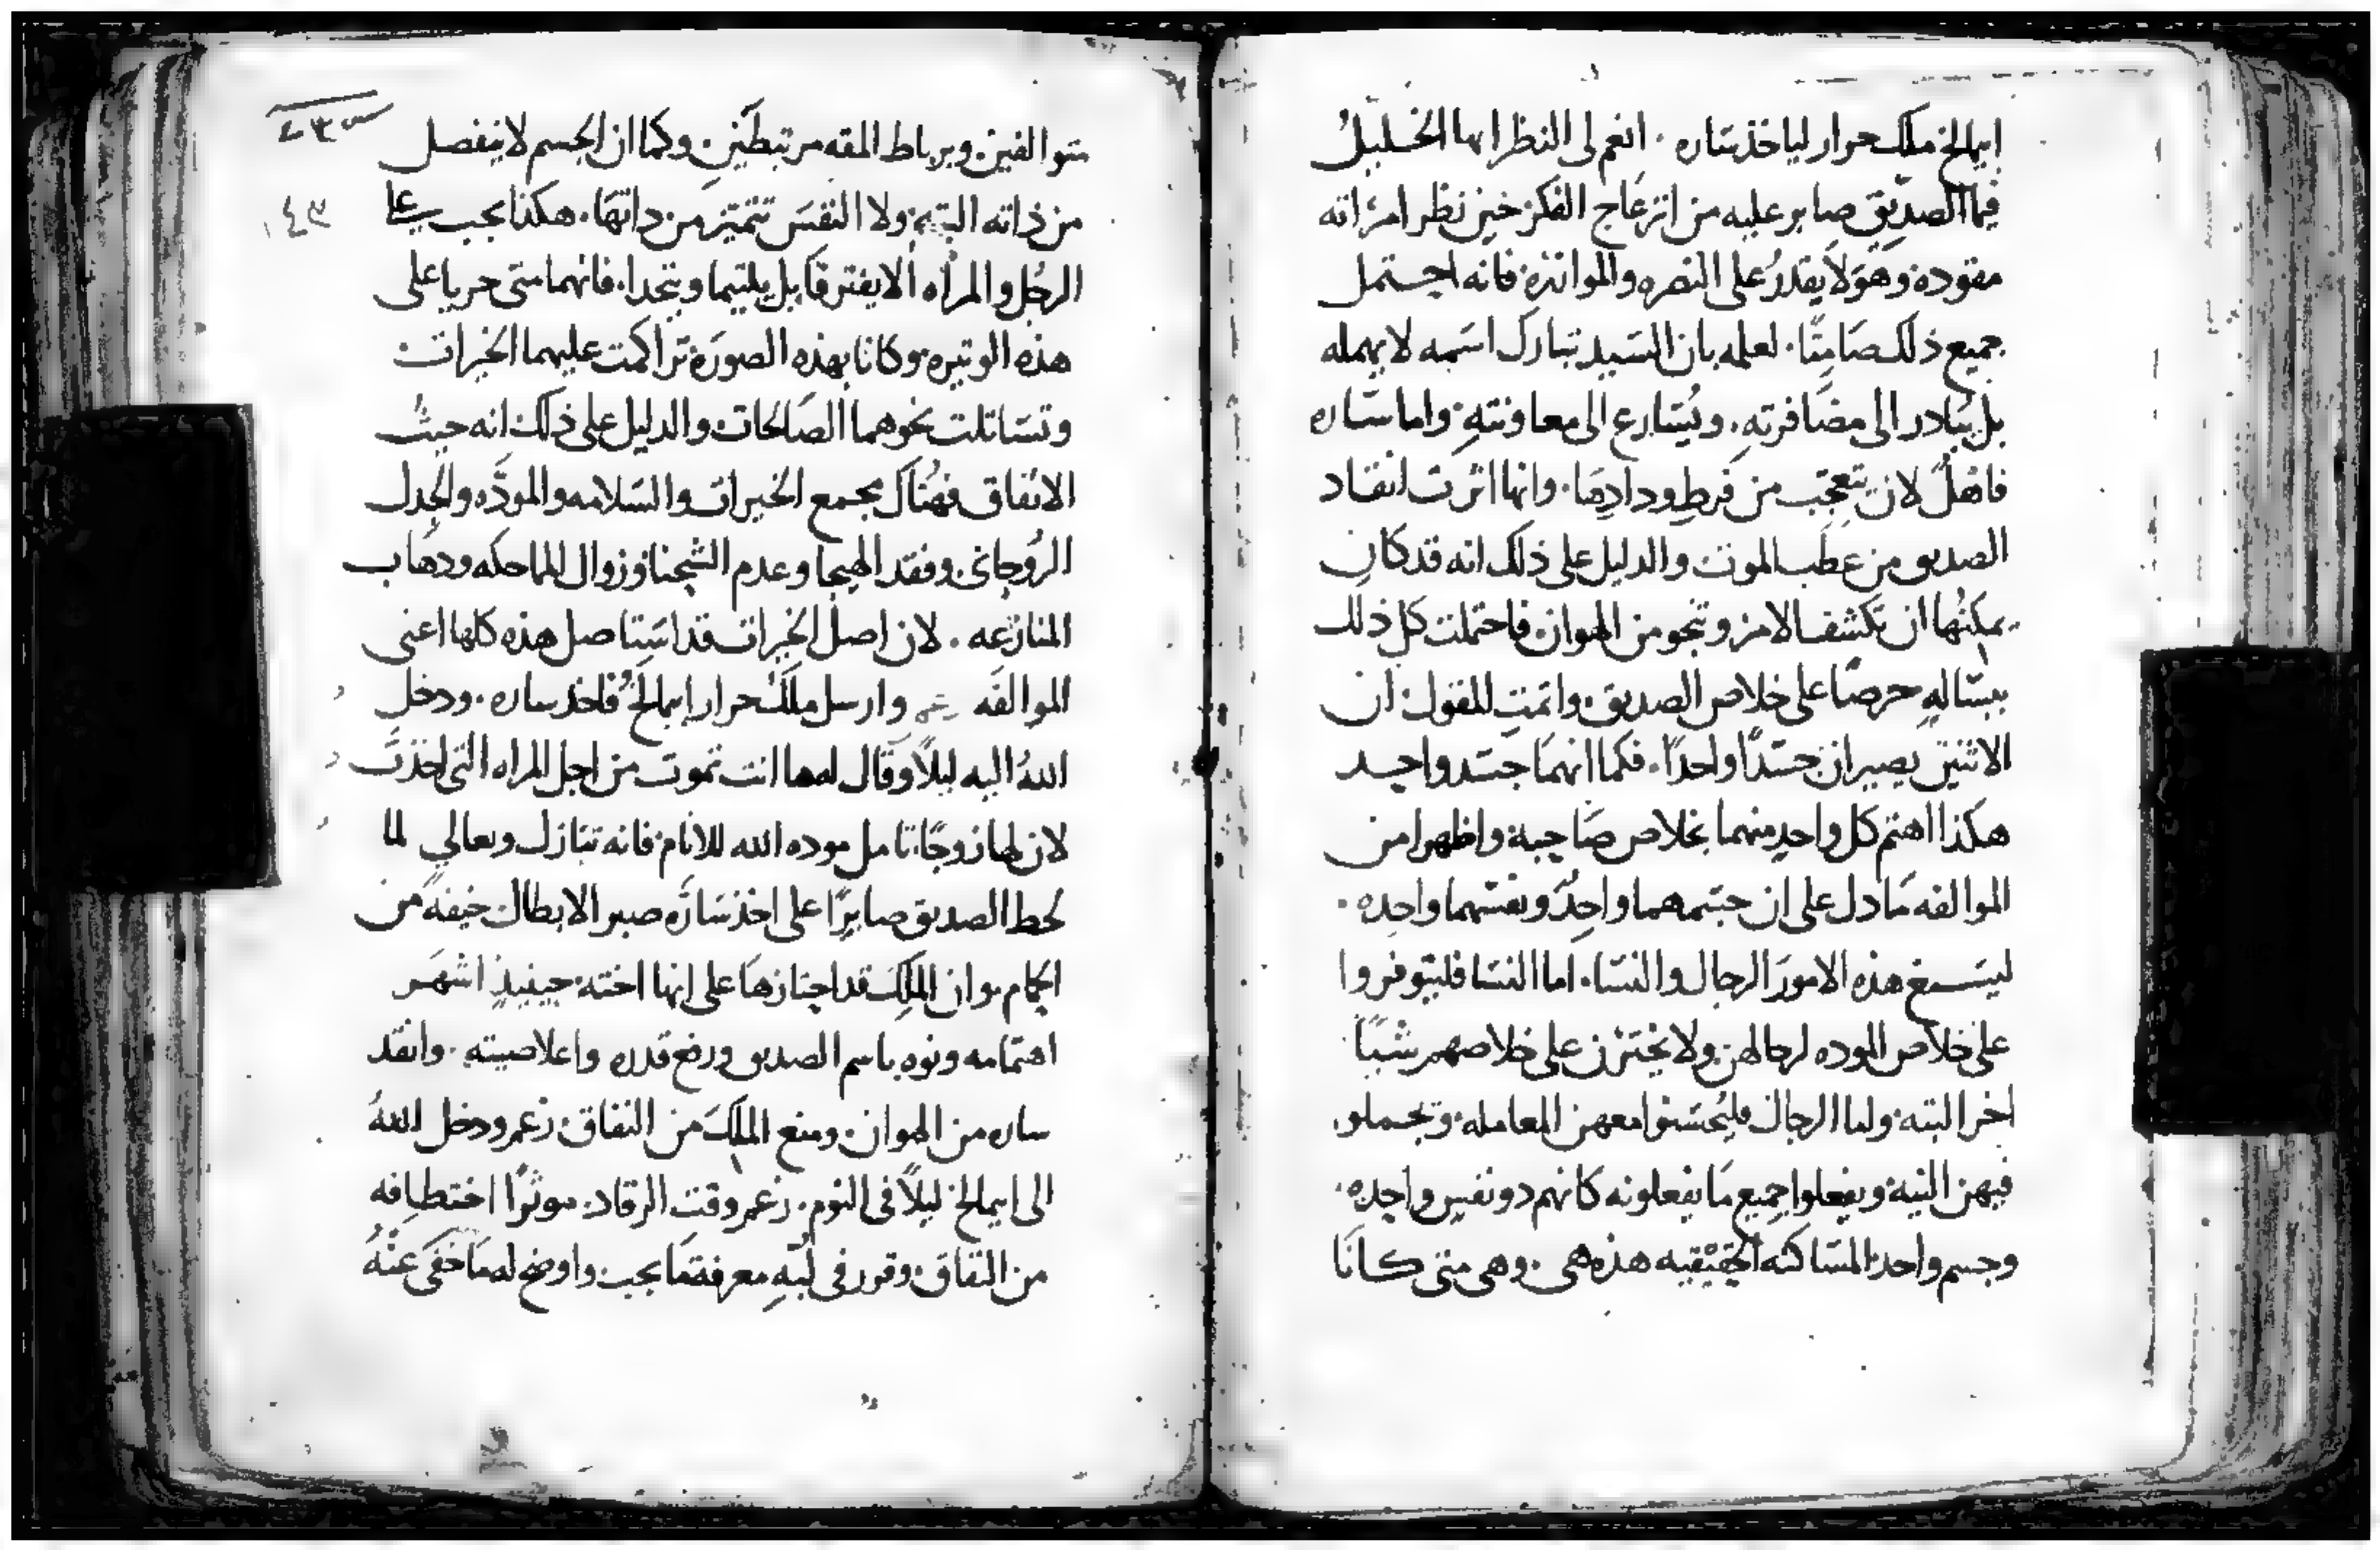 ابيمالخ ملك حرار لياخذ ساره . انعم لي النظر ايها الخليل
فيما الصديق صابر عليه من انزعاج الفكر حين نظر امراته
مقوده وهو لا يقدر على النصره والموازره فانه احتمل
جميع ذلك صامتا . لعلمه بان السيد تبارك اسمه لا يهمله
بل يبادر الى مضافرته . ويسارع الى معاونته واما ساره
فاهل لان يتعجب من فرط ودادها . وانها اثرت انقاد
الصديق من عطب الموت والدليل على ذلك انه قد كان
يمكنها ان تكشف الامر وتنجو من الهوان فاحتملت كل ذلك
ببساله حرصا على خلاص الصديق واتمت المقول ان
الاثنين يصيران جسدا واحدا . فكما انهما جسد واحد
هكذا اهتم كل واحد منهما بخلاص صاحبه واظهرا من
الموالفه ما دل على ان جسمهما واحد ونفسهما واحده .
ليسمع هذه الامور الرجال والنسا . اما النسا فليتوفروا
على خلاص الموده لرجالهن ولا يخترن على خلاصهم شيا
اخر البته واما الرجال فليحسنوا معهن المعامله ويجملو
فيهن النيه ويفعلوا جميع ما يفعلونه كانهم دو نفس واحده .
وجسم واحد المساكنه الحقيقيه هذه هي . وهي متى كانا
متوالفين وبرباط المقه مرتبطين . وكما ان الجسم لا ينفصل
من ذاته البته ولا النفس تتميز من داتها . هكذا يجب على
الرجل والمراه الا يفترقا بل يلتيما ويتحدا . فانهما متى جريا على
هذه الوتيره وكانا بهذه الصوره تراكمت عليهما الخيرات
وتساتلت نحوهما الصالحات والدليل على ذلك انه حيث
الاتفاق فهناك مجمع الخيرات والسلامه والموده والجدل
الروحاني وفقد الهيجا وعدم الشحنا وزوال المماحكه ودهاب
المنازعه . لان اصل الخيرات قد استاصل هذه كلها اعني
الموالفه وارسل ملك حرار ابيمالخ فاخد ساره . ودخل
الله اليه ليلا وقال له ها انت تموت من اجل المراه التي اخذت
لان لها زوجا تامل موده الله للانام فانه تبارك وتعالي لما
لحظ الصديق صابرا على اخذ ساره صبر الابطال خيفه من
الحمام وان الملك قد اجتازها على انها اخته حينيذ اشهر
اهتمامه ونوه باسم الصديق ورفع قدره واعلا صيته . وانقد
ساره من الهوان ومنع الملك من النفاق زعم ودخل الله
الى ابيمالخ ليلا في النوم . زعم وقت الرقاد . موثرا اختطافه
من النفاق وقرر في لبه معرفة ما يجب واوضح له ما خفي عنه